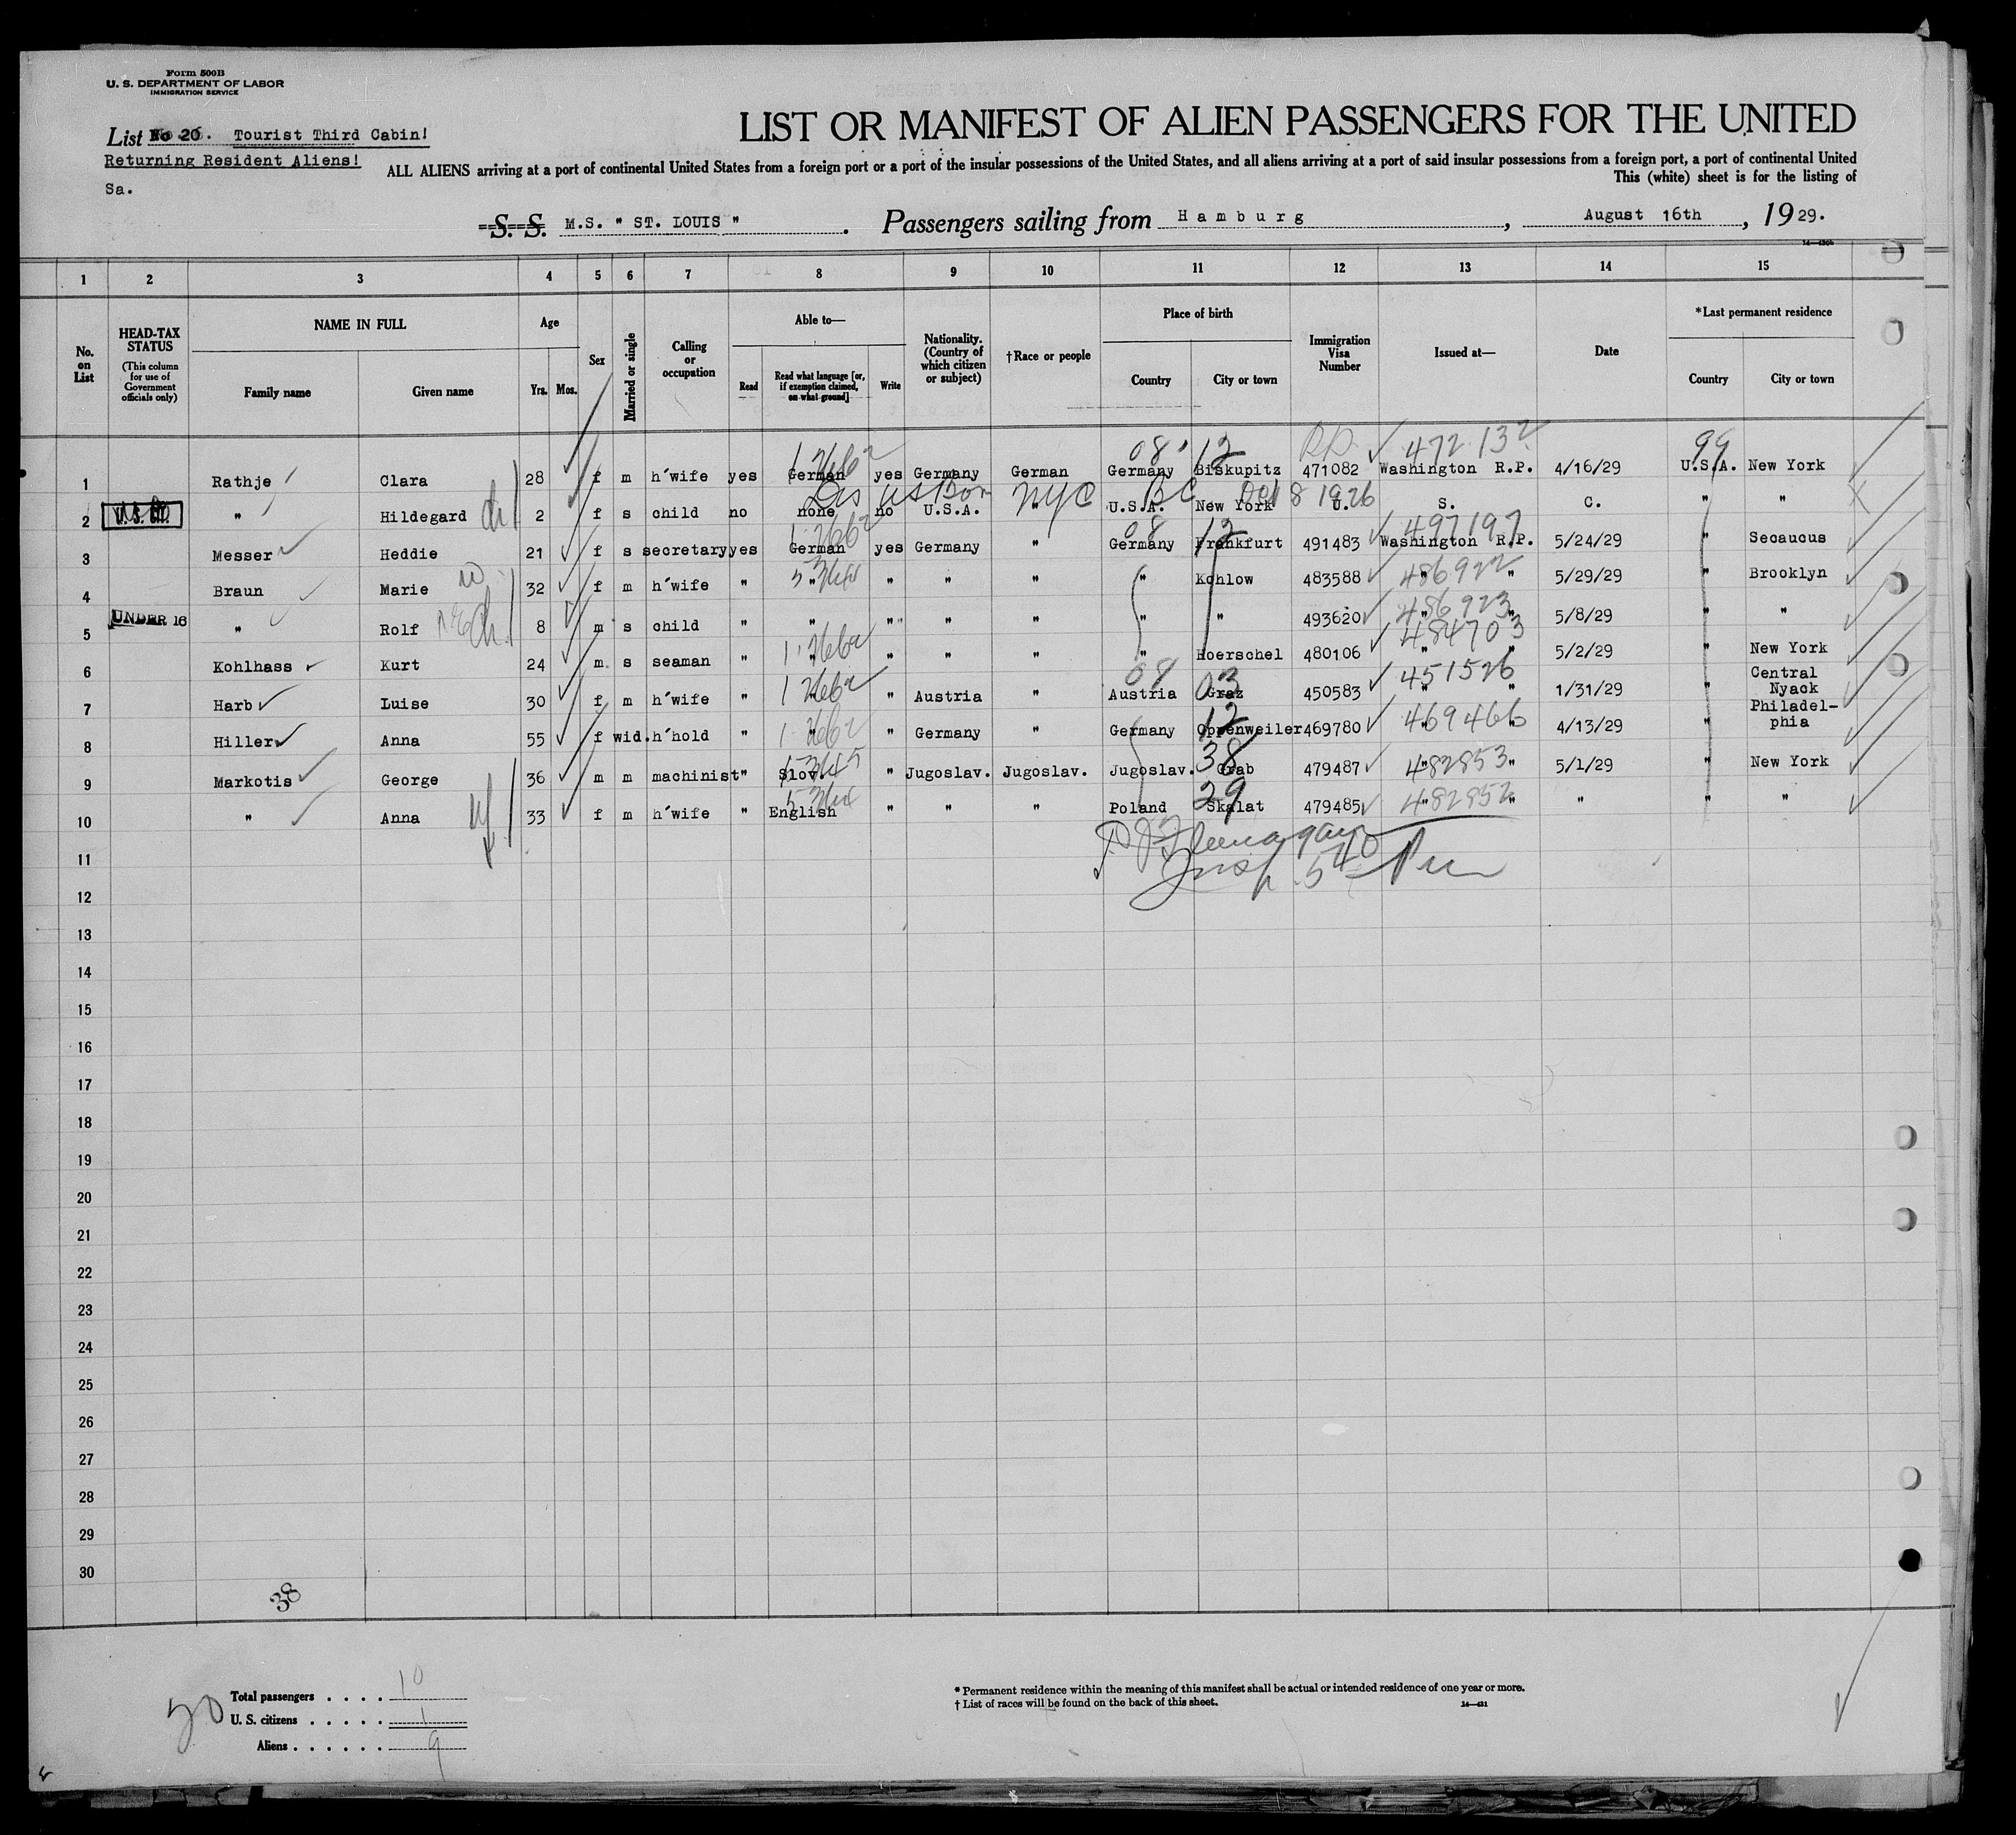 Form 500B
U. S. DEPARTMENT OF LABOR
IMMIGRATION SERVICE
List No 20. Tourist Third Cabin!
Returning Resident Aliens!
Sa.
LIST OR MANIFEST OF ALIEN PASSENGERS FOR THE UNITED
ALL ALIENS arriving at a port of continental United States from a foreign port or a port of the insular possessions of the United States, and all aliens arriving at a port of said insular possessions from a foreign port, a port of continental United
This (white) sheet is for the listing of
S. S. M.S. " ST. LOUIS ". Passengers sailing from Hamburg, August 16th, 1929.
1 2 3 4 5 6 7 8 9 10 11 12 13 14 15
No. on List
HEAD-TAX STATUS (This column for use of Government officials only)
NAME IN FULL Family name Given name
Age Yrs. Mos.
Sex
Married or single
Calling or occupation
Able to— Read Read what language [or, if exemption claimed, on what ground] Write
Nationality. (Country of which citizen or subject)
†Race or people
Place of birth Country City or town
Immigration Visa Number
Issued at—
Date
*Last permanent residence Country City or town
08 12 RP 472132 99
1 Rathje Clara 28 f m h'wife yes German yes Germany German Germany Biskupitz 471082 Washington R.P. 4/16/29 U.S.A. New York
US Born NYC BC Oct 8 1926
2 " Hildegard 2 f s child no none no U.S.A. " U.S.A. New York U. S. C. " "
08 12 497197
3 Messer Heddie 21 f s secretary yes German yes Germany " Germany Frankfurt 491483 Washington R.P. 5/24/29 " Secaucus
486922
4 Braun Marie 32 f m h'wife " " " " " " Kohlow 483588 " " 5/29/29 " Brooklyn
UNDER 16
486923
5 " Rolf 8 m s child " " " " " " " 493620 " " 5/8/29 " "
484703
6 Kohlhass Kurt 24 m s seaman " " " " " " Hoerschel 480106 " " 5/2/29 " New York
08 03 451526
7 Harb Luise 30 f m h'wife " " " Austria " Austria Graz 450583 " " 1/31/29 " Central Nyack
12 469466
8 Hiller Anna 55 f wid. h'hold " " " Germany " Germany Oppenweiler 469780 " " 4/13/29 " Philadel-phia
38 482853
9 Markotis George 36 m m machinist " Slov. " Jugoslav. Jugoslav. Jugoslav. Grab 479487 " " 5/1/29 " New York
29 482952
10 " Anna 33 f m h'wife " English " " " Poland Skalat 479485 " " " " "
11
Insp.
12
13
14
15
16
17
18
19
20
21
22
23
24
25
26
27
28
29
30
38
Total passengers . . . . 10
U. S. citizens . . . . . 1
Aliens . . . . . . 9
* Permanent residence within the meaning of this manifest shall be actual or intended residence of one year or more.
† List of races will be found on the back of this sheet.
14—431